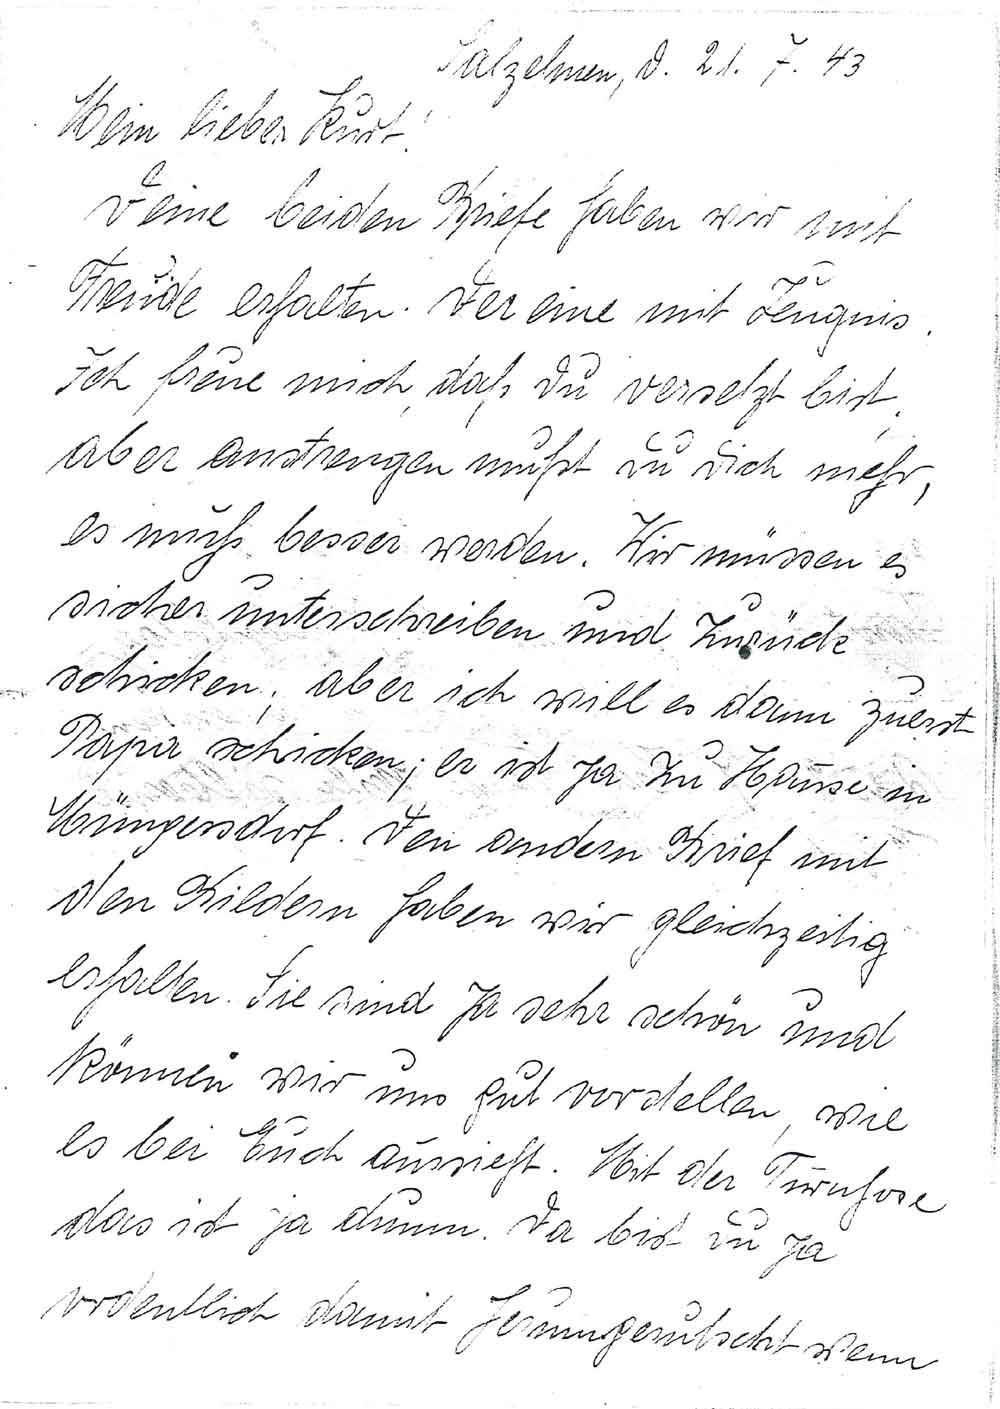 Salzelmen, d. 21. 7. 43
Mein lieber Kurt!
Deine beiden Briefe haben wir mit
Freude erhalten. Der eine mit Zeugnis.
Ich freue mich, daß Du versetzt bist,
aber anstrengen mußt Du Dich mehr,
es muß besser werden. Wir müssen es
sicher unterschreiben und zurück
schicken, aber ich will es dann zuerst
Papa schicken; er ist ja zu Hause in
Müngersdorf. Den andern Brief mit
den Bildern haben wir gleichzeitig
erhalten. Sie sind ja sehr schön und
können wir uns gut vorstellen, wie
es bei Euch aussieht. Mit der Turnhose
das ist ja dumm. Da bist Du ja
ordentlich damit herumgerutscht wenn